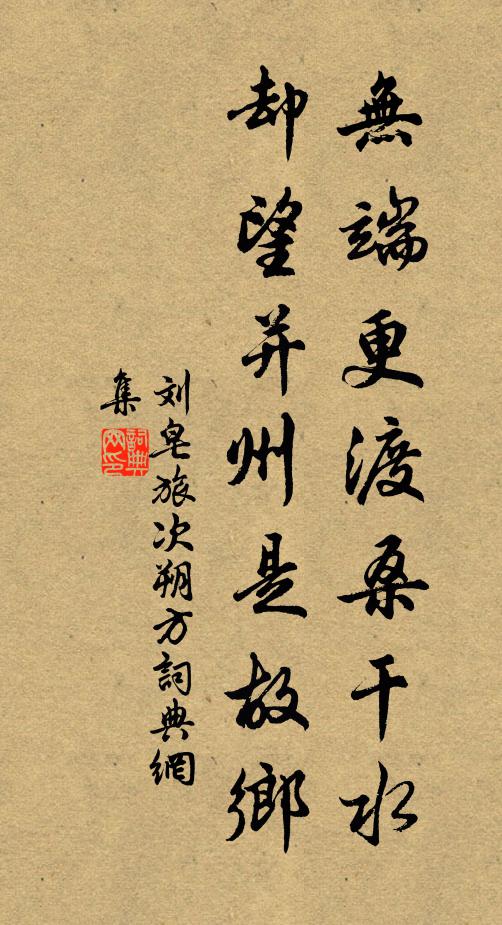 無端更渡桑干水
却望并州是故鄉
刘皂旅次朔方詞典網
集
詞典网印